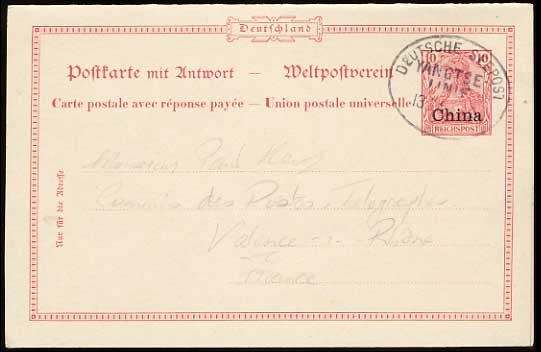 Deutschland
Postkarte mit Antwort — Weltpostverein
Carte postale avec réponse payée — Union postale universelle
10 10
China
REICHSPOST
DEUTSCHE SEEPOST
YANGTSE
LINIE
13
Nur für die Adresse
Monsieur Paul
Commis des Postes, Telegraphes
Valence s. Rhône
France